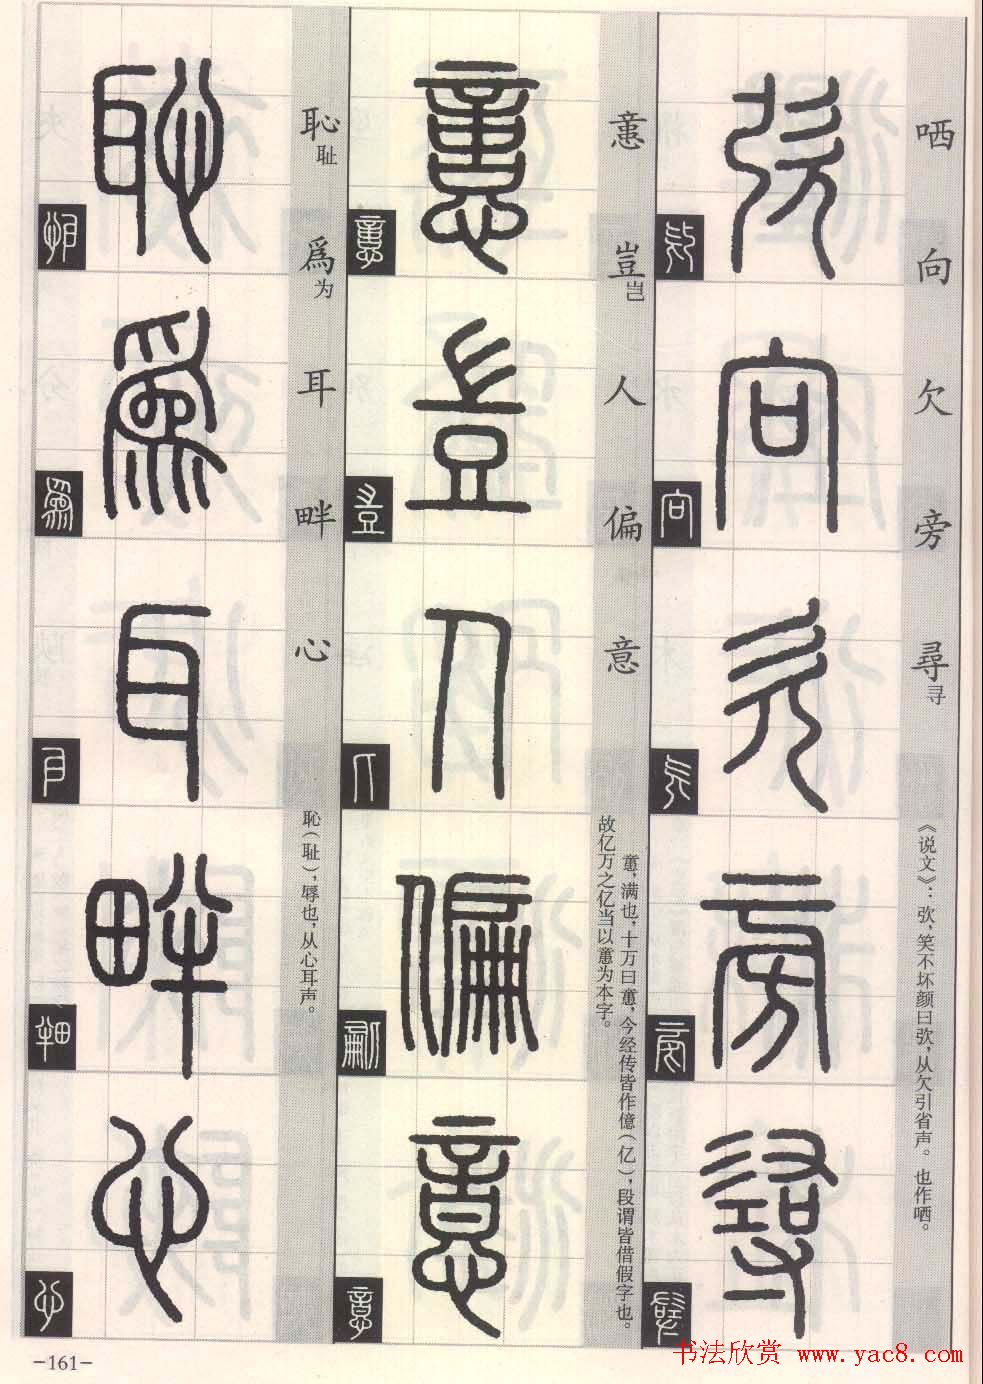 哂向欠旁尋寻
《说文》：弞，笑不坏颜曰弞，从欠引省声。也作哂。
意豈岂人偏意
𢡃，满也，十万曰𢡃，今经传皆作億（亿），段谓皆借假字也。
故亿万之亿当以𢡃为本字。
恥耻爲为耳畔心
恥（耻），辱也，从心耳声。
-161-
书法欣赏 www.yac8.com